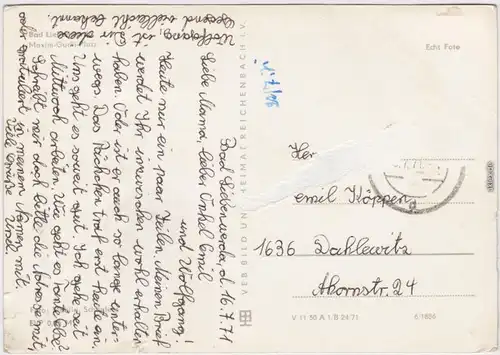 Bad Liebenwerda, d. 16.7.71
Liebe Mama, lieber Onkel Emil
und Wolfgang!
Heute nur ein paar Zeilen. Meinen Brief
werdet Ihr inzwischen wohl erhalten
haben. Oder ist er auch so lange unter-
wegs. Das Päckchen traf erst heute ein.
Uns geht es soweit gut. Ich gehe seit
Mittwoch arbeiten. Wie geht es Tante Ella?
Schreibt mir doch bitte die Adresse mit,
oder gratuliert in meinem Namen mit.
Viele Grüße
Wolfgang, ist Dir diese
Gegend vielleicht bekannt
Bad Lie
Maxim-Gorki-Platz
Echt Foto
VEB BILD UND HEIMAT REICHENBACH I. V.
Herr
emil Köppen
1636 Dahlewitz
Ahornstr. 24
V 11 50 A 1/B 24/71
6/1686